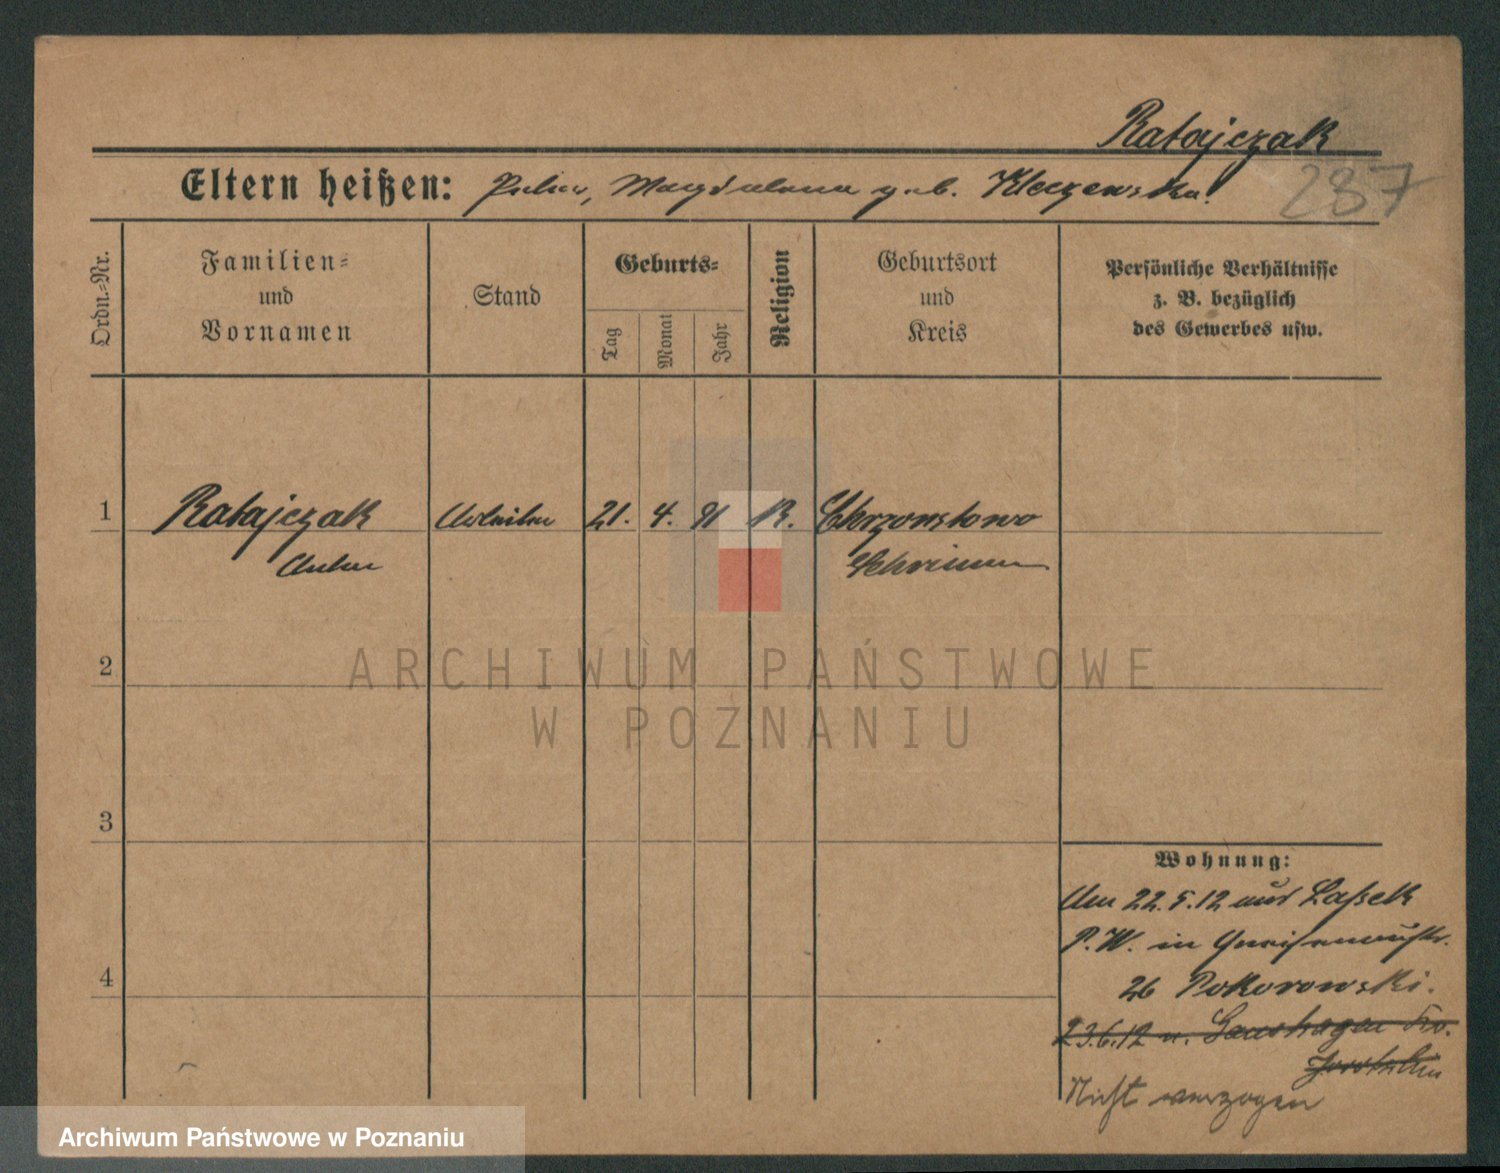 Ratajczak
Eltern heißen: Peter, Magdalena geb. Kleczewska.
287
Ordn.=Nr.
Familien=
und
Vornamen
Stand
Geburts=
Tag
Monat
Jahr
Religion
Geburtsort
und
Kreis
Persönliche Verhältnisse
z. B. bezüglich
des Gewerbes usw.
1 Ratajczak Arbeiter 21. 4. 91 K. Chrzonstowo
Anton Schrimm
2
ARCHIWUM PAŃSTWOWE
W POZNANIU
3
Wohnung:
Am 22.5.12 aus Lassek
P. W. in Gneisenaustr.
4
26 Pokorowski.
23.6.12 n.
Nicht verzogen
Archiwum Państwowe w Poznaniu